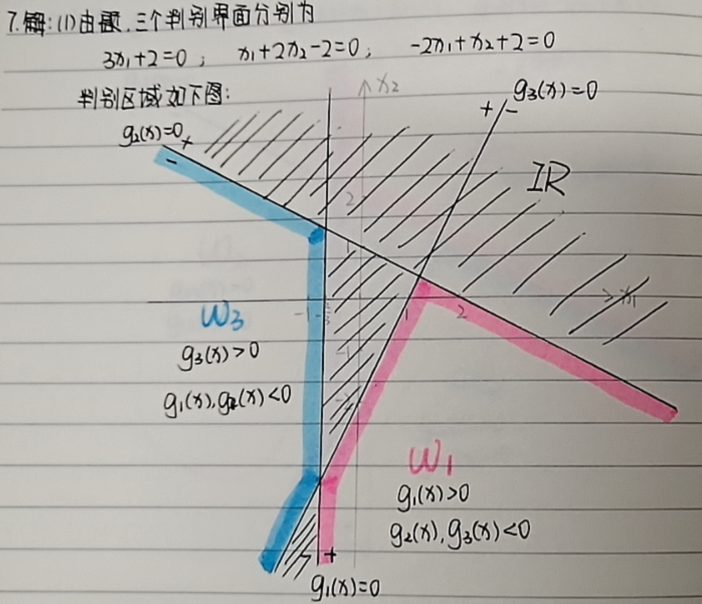 7.解:(1)由题,三个判别界面分别为
3x₁+2=0; x₁+2x₂-2=0; -2x₁+x₂+2=0
判别区域如下图:
x₂
g₃(x)=0
+ -
g₂(x)=0
+
-
IR
2
1
x₁
-1
1
2
W₃
g₃(x)>0
g₁(x),g₂(x)<0
W₁
g₁(x)>0
g₂(x),g₃(x)<0
+
g₁(x)=0